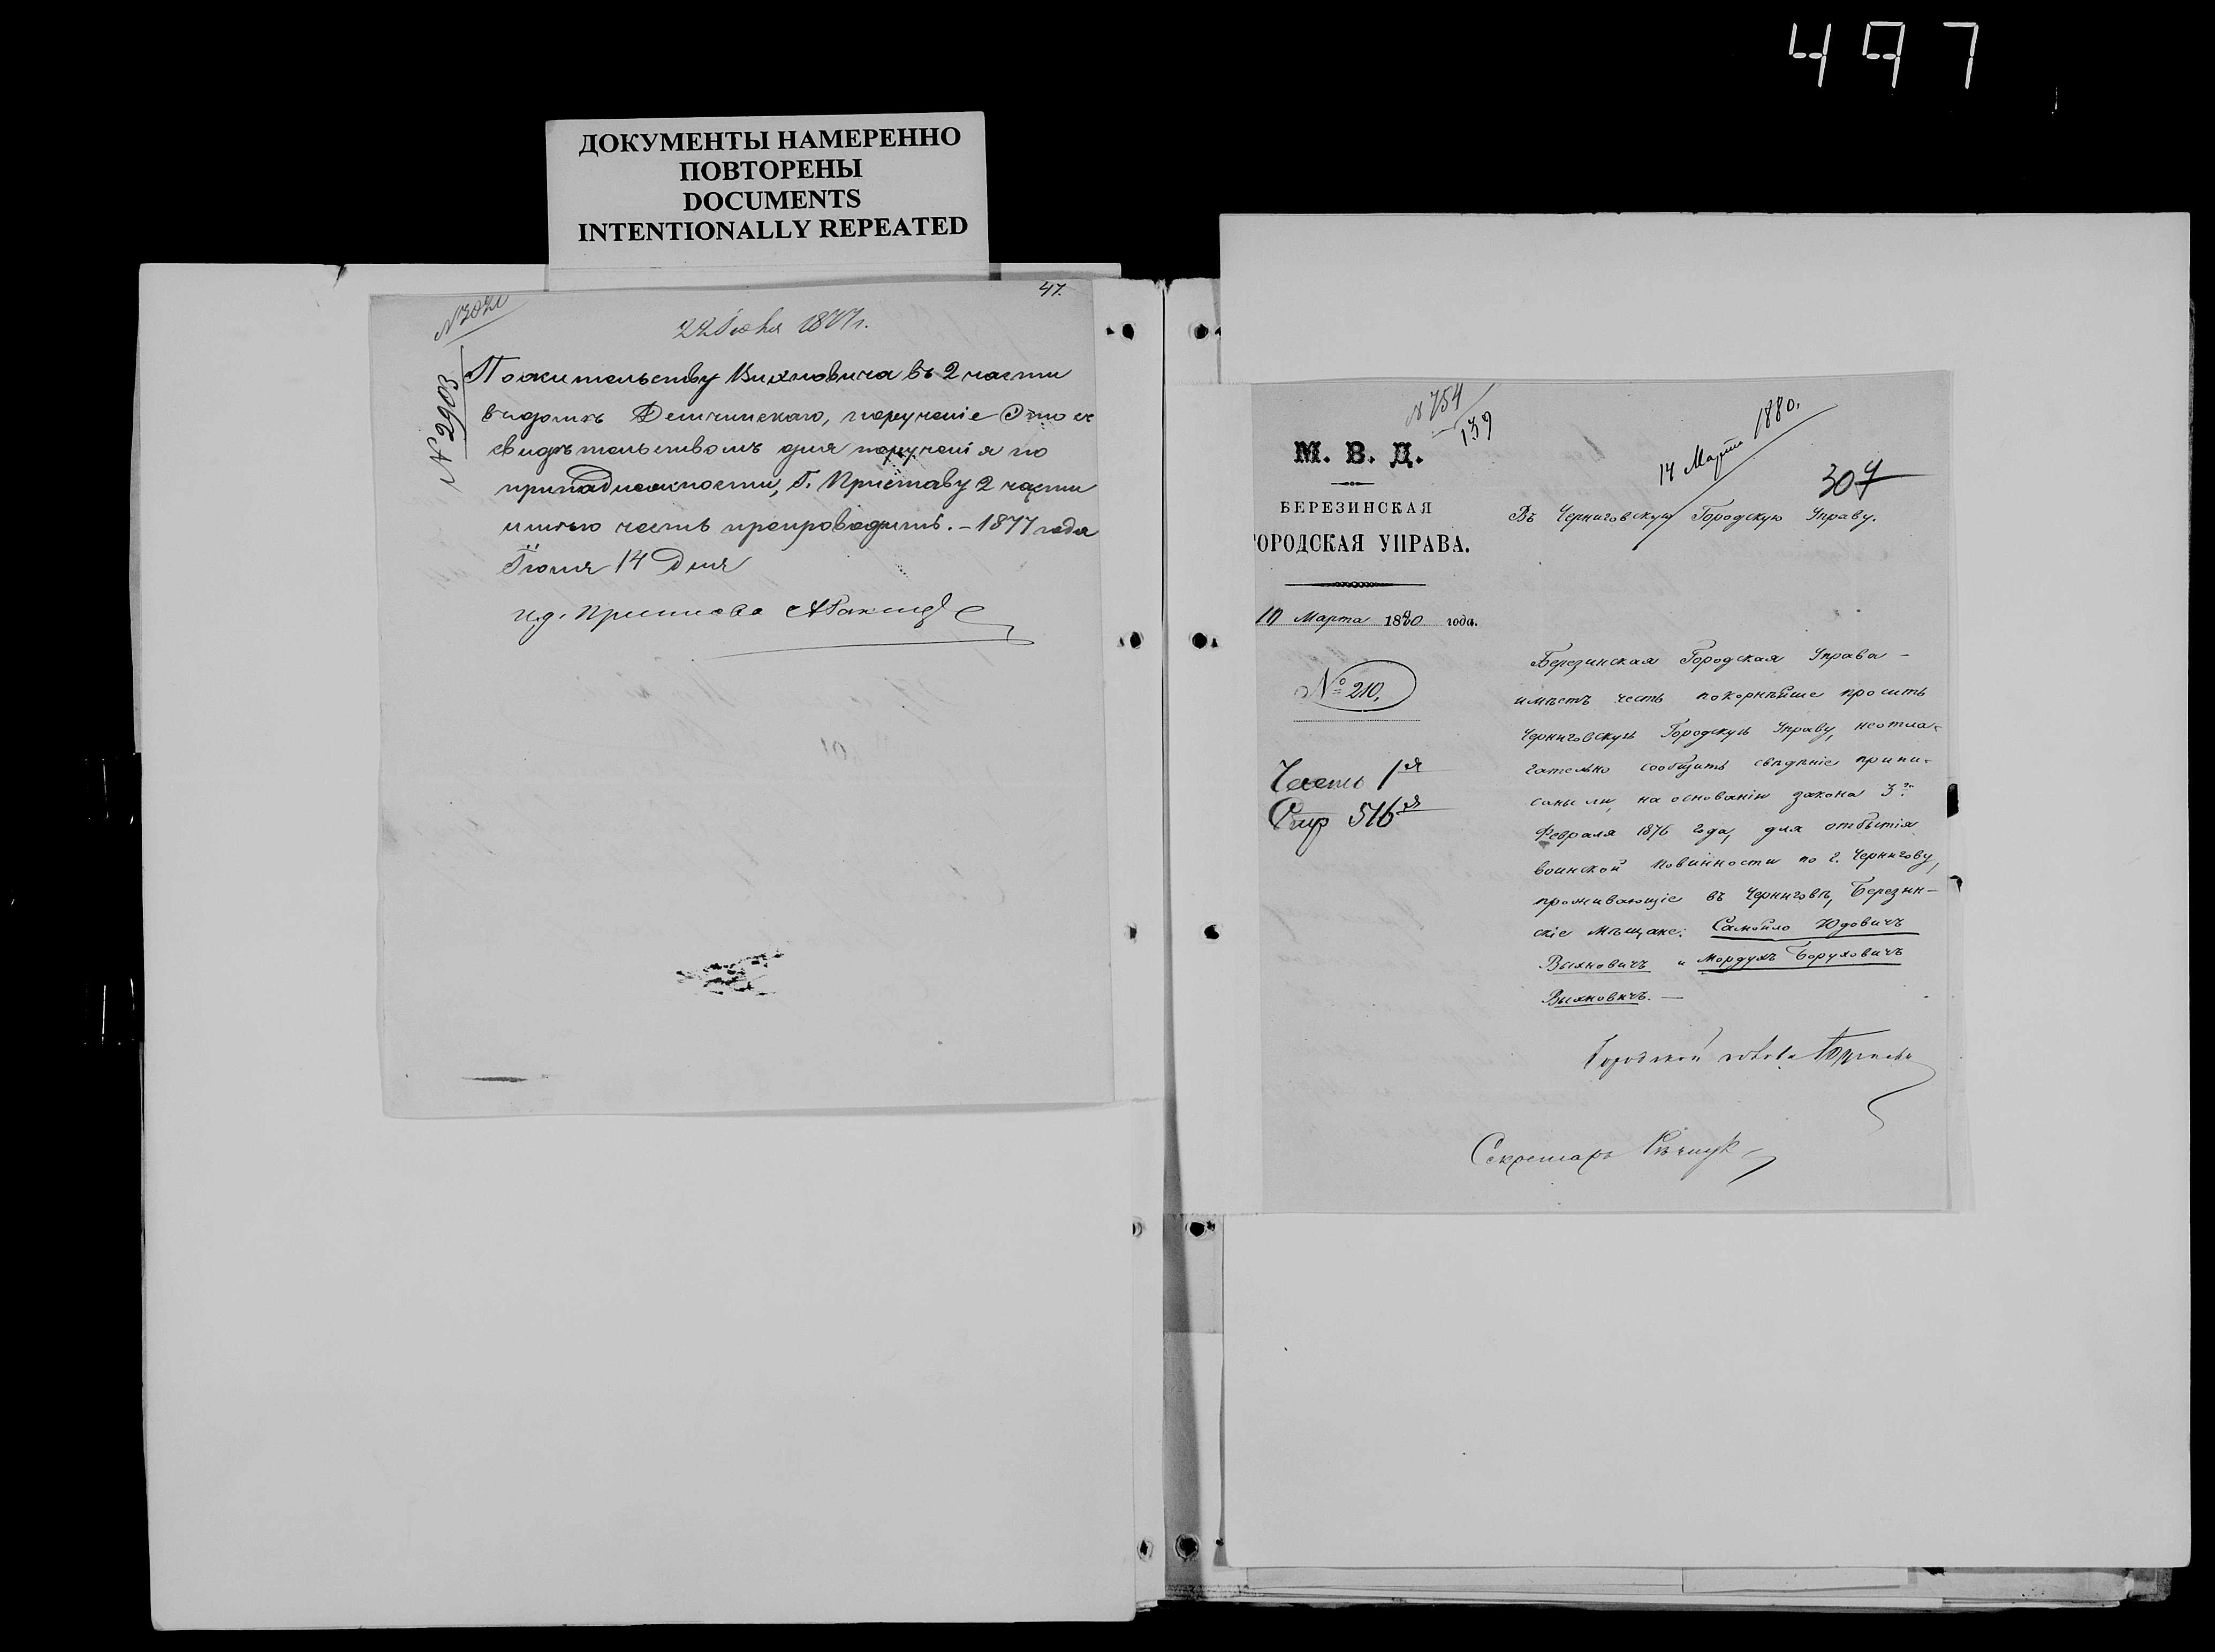 497
ДОКУМЕНТЫ НАМЕРЕННО
ПОВТОРЕНЫ
DOCUMENTS
INTENTIONALLY REPEATED
47.
22 Іюня 1877г.
№ 2903
По жительству Выхновича въ 2 части
въ домѣ поручение это съ
свидѣтельствомъ для поручения по
принадлежности, Г. Приставу 2 части
имѣю честь препроводить. – 1877 года
Іюня 14 Дня
И.д. Пристава
№ 754
139
М. В. Д.
БЕРЕЗИНСКАЯ
ГОРОДСКАЯ УПРАВА.
Марта 1880 года.
№ 210.
Часть 1я
Стр 516я
14 Марта 1880.
307
Въ Черниговскую Городскую Управу.
Березинская Городская Управа –
имѣетъ честь покорнѣйше просить
Черниговскую Городскую Управу, неотла-
гательно сообщить свѣдѣніе припи-
саны ли, на основаніи закона 3го
Февраля 1876 года, для отбытія
воинской повинности по г. Чернигову,
проживающіе въ Черниговѣ, Березин-
скіе мѣщане: Самойло Юдовичъ
Выхновичъ и Мордухъ Боруховичъ
Выхновичъ. –
Городской голова
Секретарь